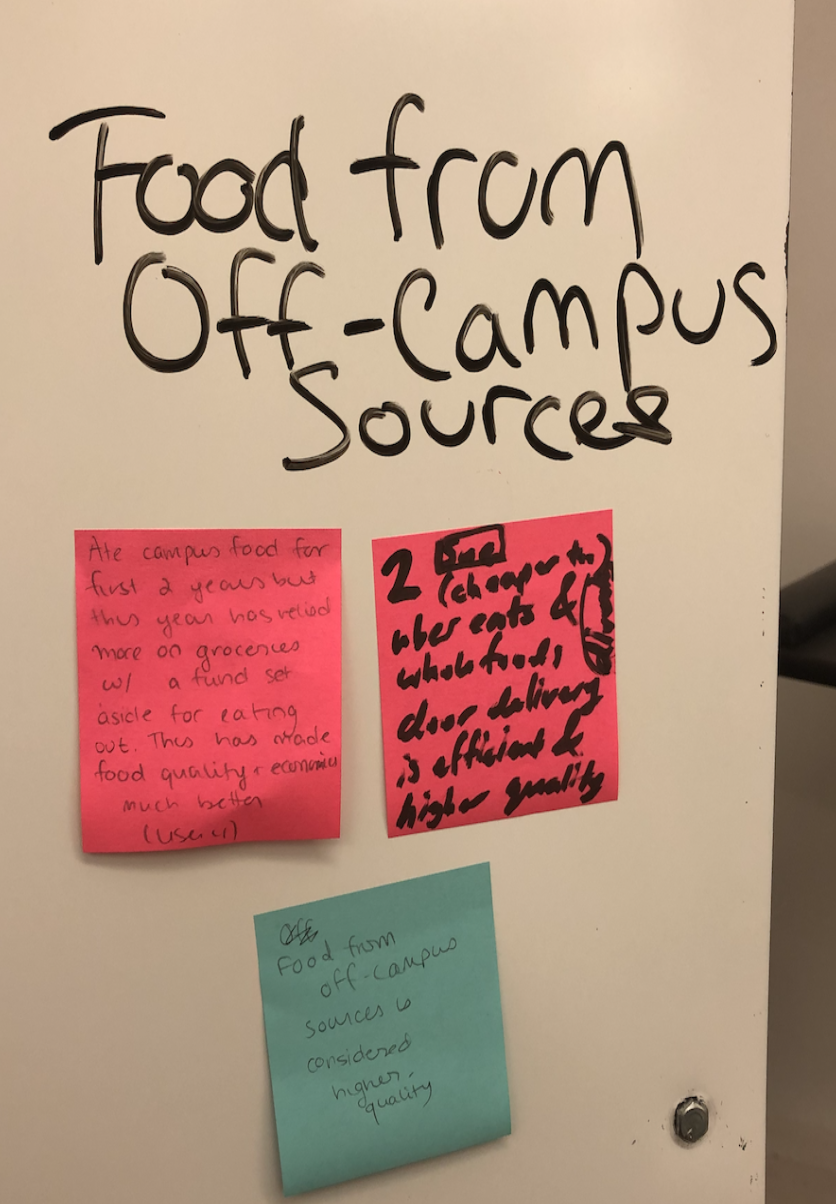 Food from
Off-Campus
Sources
Ate campus food for
first 2 years but
this year has relied
more on groceries
w/ a fund set
aside for eating
out. This has made
food quality +
much better
(User 4)
2
(cheaper
uber eats &
whole foods
door delivery
is efficient &
higher quality
Food from
off-campus
sources is
considered
higher
quality